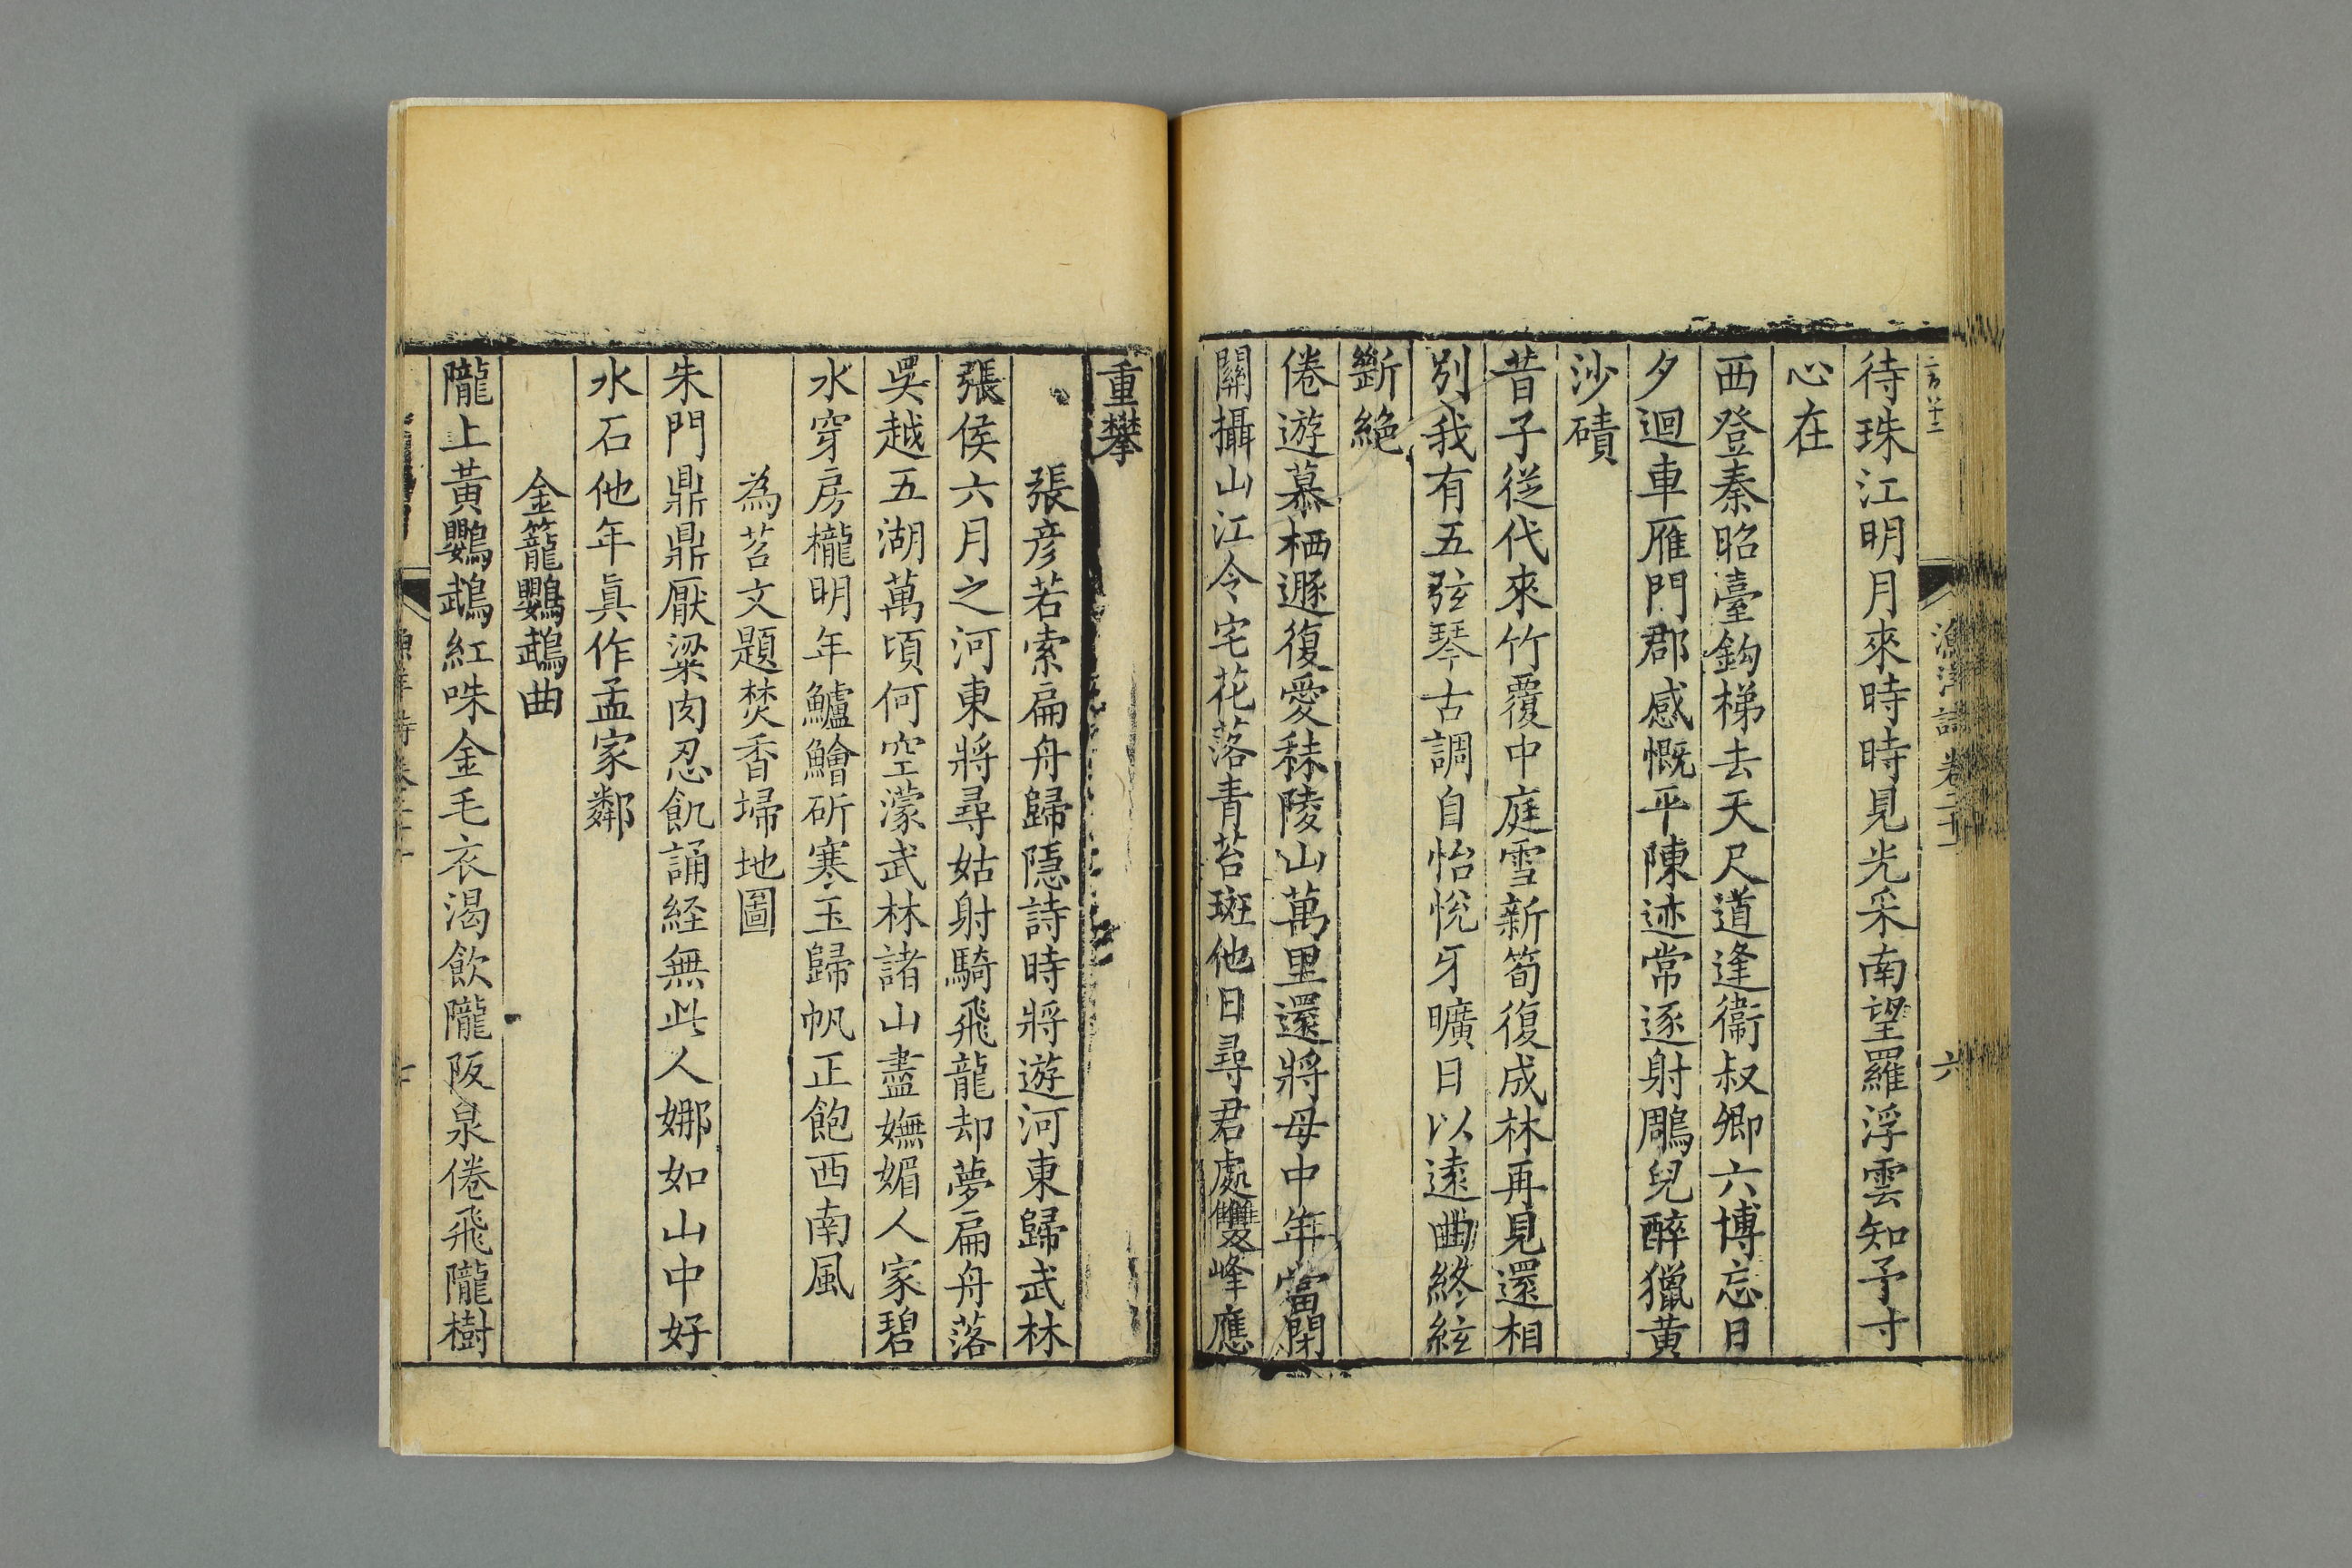 待珠江明月來時時見光采南望羅浮雲知予寸
心在
西登秦昭臺鈎梯去天尺道逢衞叔卿六博忘日
夕迴車雁門郡感慨平陳迹常逐射鵰兒醉獵黄
沙磧
昔子從代來竹覆中庭雪新筍復成林再見還相
別我有五弦琴古調自怡悅牙曠日以遠曲終絃
斷絶
倦遊慕栖遯復愛秣陵山萬里還將母中年當閉
關攝山江令宅花落青苔斑他日尋君處雙峰應
重攀
張彦若索扁舟歸隱詩時將遊河東歸武林
張侯六月之河東將尋姑射騎飛龍却夢扁舟落
吳越五湖萬頃何空濛武林諸山盡嫵媚人家碧
水穿房櫳明年鱸鱠斫寒玉歸帆正飽西南風
為苕文題焚香埽地圖
朱門鼎鼎厭粱肉忍飢誦経無此人娜如山中好
水石他年眞作孟家鄰
金籠鸚鵡曲
隴上黃鸚鵡紅咮金毛衣渴飲隴阪泉倦飛隴樹